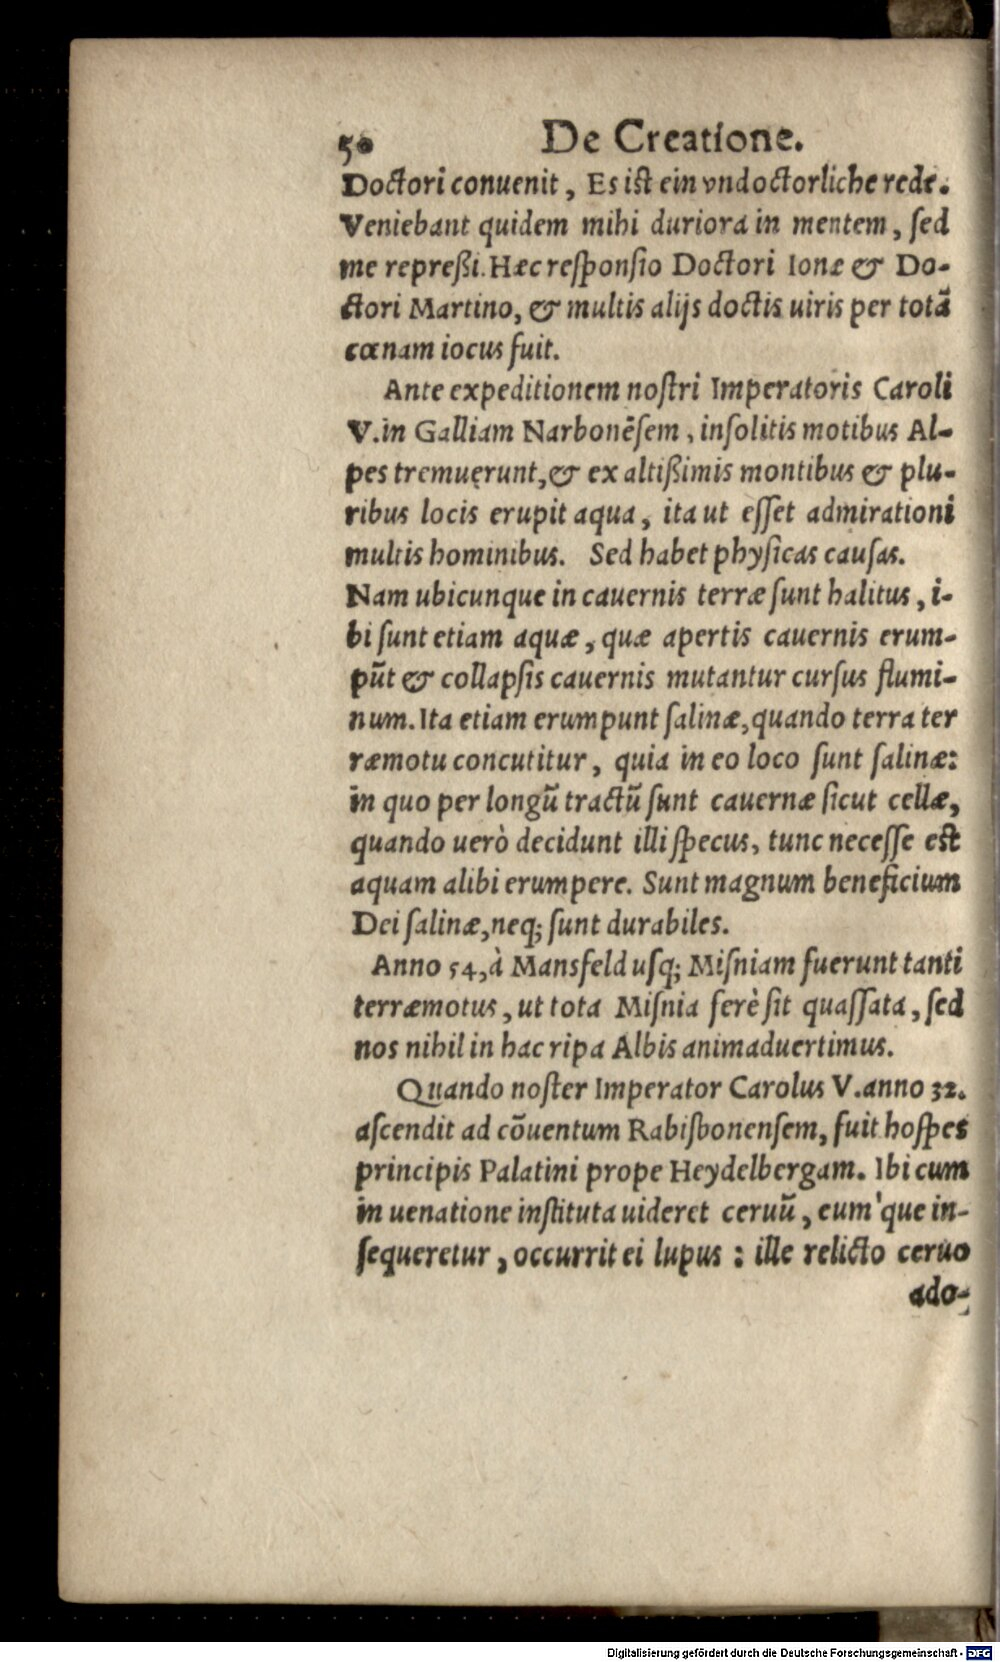 50 De Creatione.
Doctori conuenit, Es ist ein vndoctorliche rede.
Veniebant quidem mihi duriora in mentem, sed
me repreßi. Hæc responsio Doctori Ionæ & Do-
ctori Martino, & multis alijs doctis uiris per totã
cœnam iocus fuit.
Ante expeditionem nostri Imperatoris Caroli
V. in Galliam Narbonẽsem, insolitis motibus Al-
pes tremuerunt, & ex altißimis montibus & plu-
ribus locis erupit aqua, ita ut esset admirationi
multis hominibus. Sed habet physicas causas.
Nam ubicunque in cauernis terræ sunt halitus, i-
bi sunt etiam aquæ, quæ apertis cauernis erum-
pũt & collapsis cauernis mutantur cursus flumi-
num. Ita etiam erumpunt salinæ, quando terra ter
ræmotu concutitur, quia in eo loco sunt salinæ:
in quo per longũ tractũ sunt cauernæ sicut cellæ,
quando uerò decidunt illi specus, tunc necesse est
aquam alibi erumpere. Sunt magnum beneficium
Dei salinæ, neq; sunt durabiles.
Anno 54, à Mansfeld usq; Misniam fuerunt tanti
terræmotus, ut tota Misnia ferè sit quassata, sed
nos nihil in hac ripa Albis animaduertimus.
Quando noster Imperator Carolus V. anno 32.
ascendit ad cõuentum Rabisbonensem, fuit hospes
principis Palatini prope Heydelbergam. Ibi cum
in uenatione instituta uideret ceruũ, eum'que in-
sequeretur, occurrit ei lupus: ille relicto ceruo
ado-
Digitalisierung gefördert durch die Deutsche Forschungsgemeinschaft - DFG